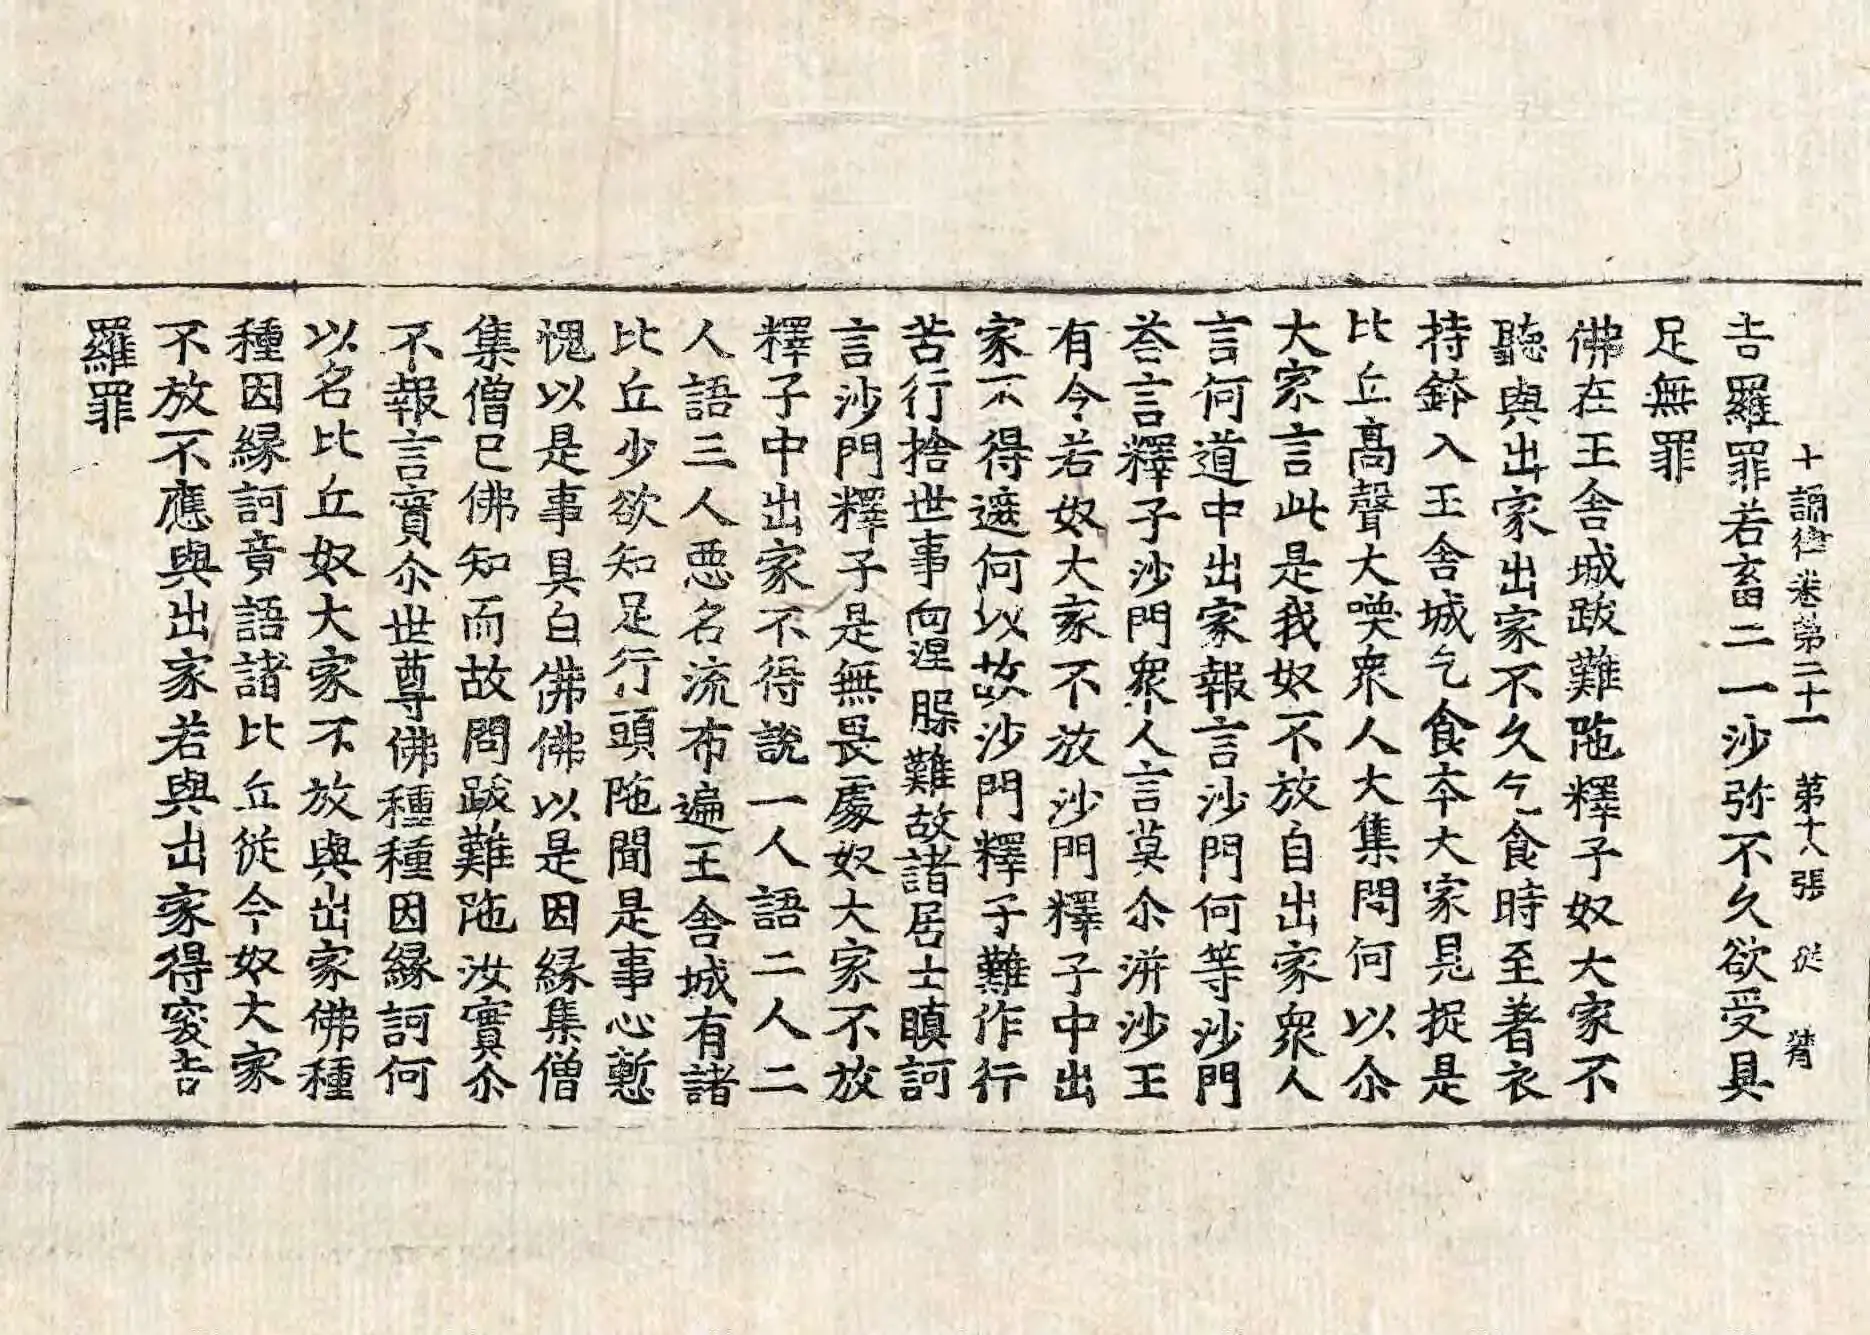 十誦律卷第二十一　第十八張　從
吉羅罪若畜二一沙弥不久欲受具
足無罪
佛在王舍城跋難陁釋子奴大家不
聽與出家出家不久乞食時至著衣
持鉢入王舍城乞食夲大家見捉是
比丘高聲大喚衆人大集問何以尒
大家言此是我奴不放自出家衆人
言何道中出家報言沙門何等沙門
荅言釋子沙門衆人言莫尒洴沙王
有令若奴大家不放沙門釋子中出
家不得遮何以故沙門釋子難作行
苦行捨世事向涅槃難故諸居士瞋訶
言沙門釋子是無畏處奴大家不放
釋子中出家不得說一人語二人二
人語三人惡名流布遍王舍城有諸
比丘少欲知足行頭陁聞是事心慙
愧以是事具白佛佛以是因緣集僧
集僧已佛知而故問跋難陁汝實尒
不報言實尒世尊佛種種因緣訶何
以名比丘奴大家不放與出家佛種
種因緣訶責語諸比丘從今奴大家
不放不應與出家若與出家得突吉
羅罪